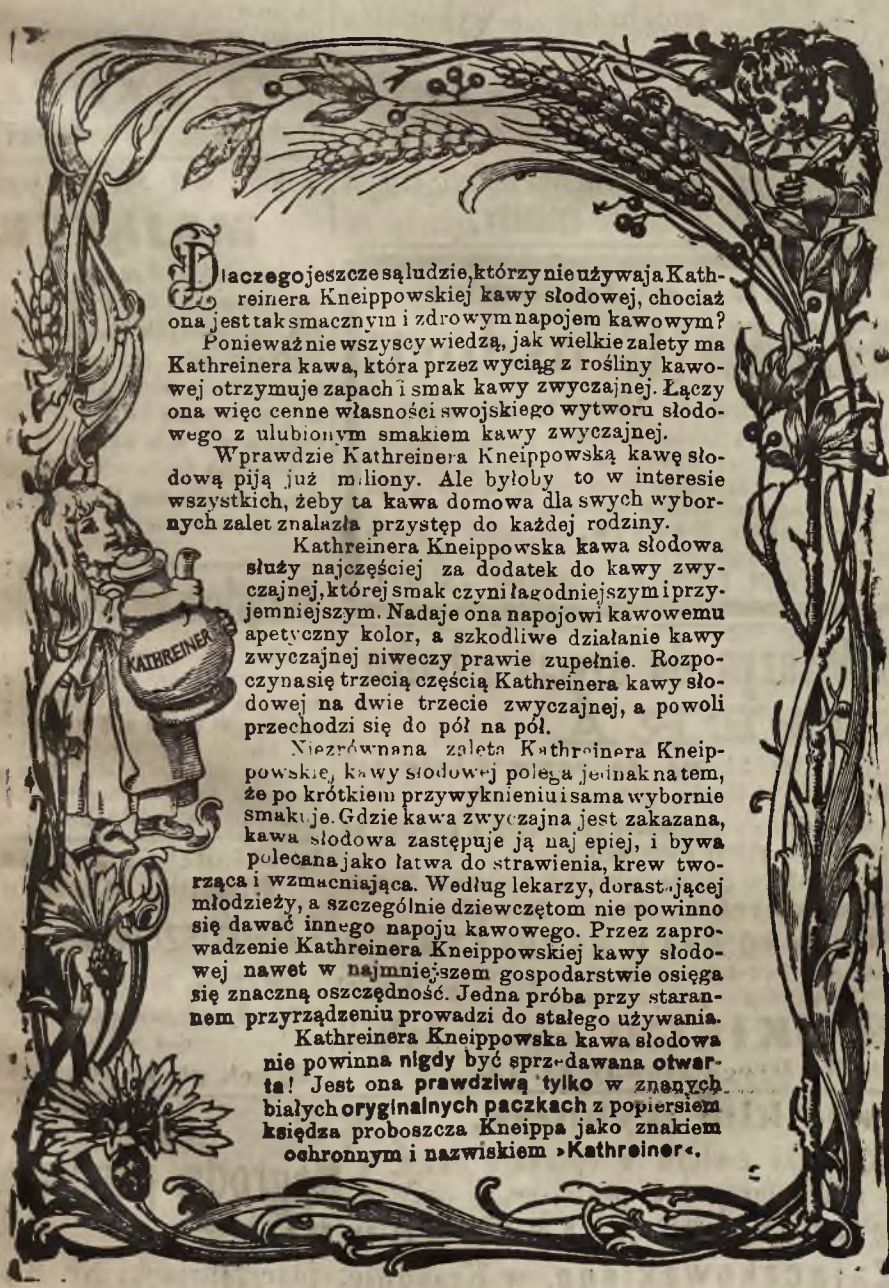 Dlaczego jeszcze są ludzie, którzy nie używają Kath-
reinera Kneippowskiej kawy słodowej, chociaż
ona jest tak smacznym i zdrowym napojem kawowym?
Ponieważ nie wszyscy wiedzą, jak wielkie zalety ma
Kathreinera kawa, która przez wyciąg z rośliny kawo-
wej otrzymuje zapach i smak kawy zwyczajnej. Łączy
ona więc cenne własności swojskiego wytworu słodo-
wego z ulubionym smakiem kawy zwyczajnej.
Wprawdzie Kathreinera Kneippowską kawę sło-
dową piją już miliony. Ale byłoby to w interesie
wszystkich, żeby ta kawa domowa dla swych wybor-
nych zalet znalazła przystęp do każdej rodziny.
Kathreinera Kneippowska kawa słodowa
służy najczęściej za dodatek do kawy zwy-
czajnej, której smak czyni łagodniejszym i przy-
jemniejszym. Nadaje ona napojowi kawowemu
apetyczny kolor, a szkodliwe działanie kawy
zwyczajnej niweczy prawie zupełnie. Rozpo-
czyna się trzecią częścią Kathreinera kawy sło-
dowej na dwie trzecie zwyczajnej, a powoli
przechodzi się do pół na pół.
Niezrównana zaleta Kathreinera Kneip-
powskiej kawy słodowej polega jednak na tem,
że po krótkiem przywyknieniu i sama wybornie
smakuje. Gdzie kawa zwyczajna jest zakazana,
kawa słodowa zastępuje ją najlepiej, i bywa
polecana jako łatwa do strawienia, krew two-
rząca i wzmacniająca. Według lekarzy, dorastającej
młodzieży, a szczególnie dziewczętom nie powinno
się dawać innego napoju kawowego. Przez zapro-
wadzenie Kathreinera Kneippowskiej kawy słodo-
wej nawet w najmniejszem gospodarstwie osięga
się znaczną oszczędność. Jedna próba przy staran-
nem przyrządzeniu prowadzi do stałego używania.
Kathreinera Kneippowska kawa słodowa
nie powinna nigdy być sprzedawana otwar-
ta! Jest ona prawdziwą tylko w znanych
białych oryginalnych paczkach z popiersiem
księdza proboszcza Kneippa jako znakiem
ochronnym i nazwiskiem »Kathreiner«.
KATHREINER